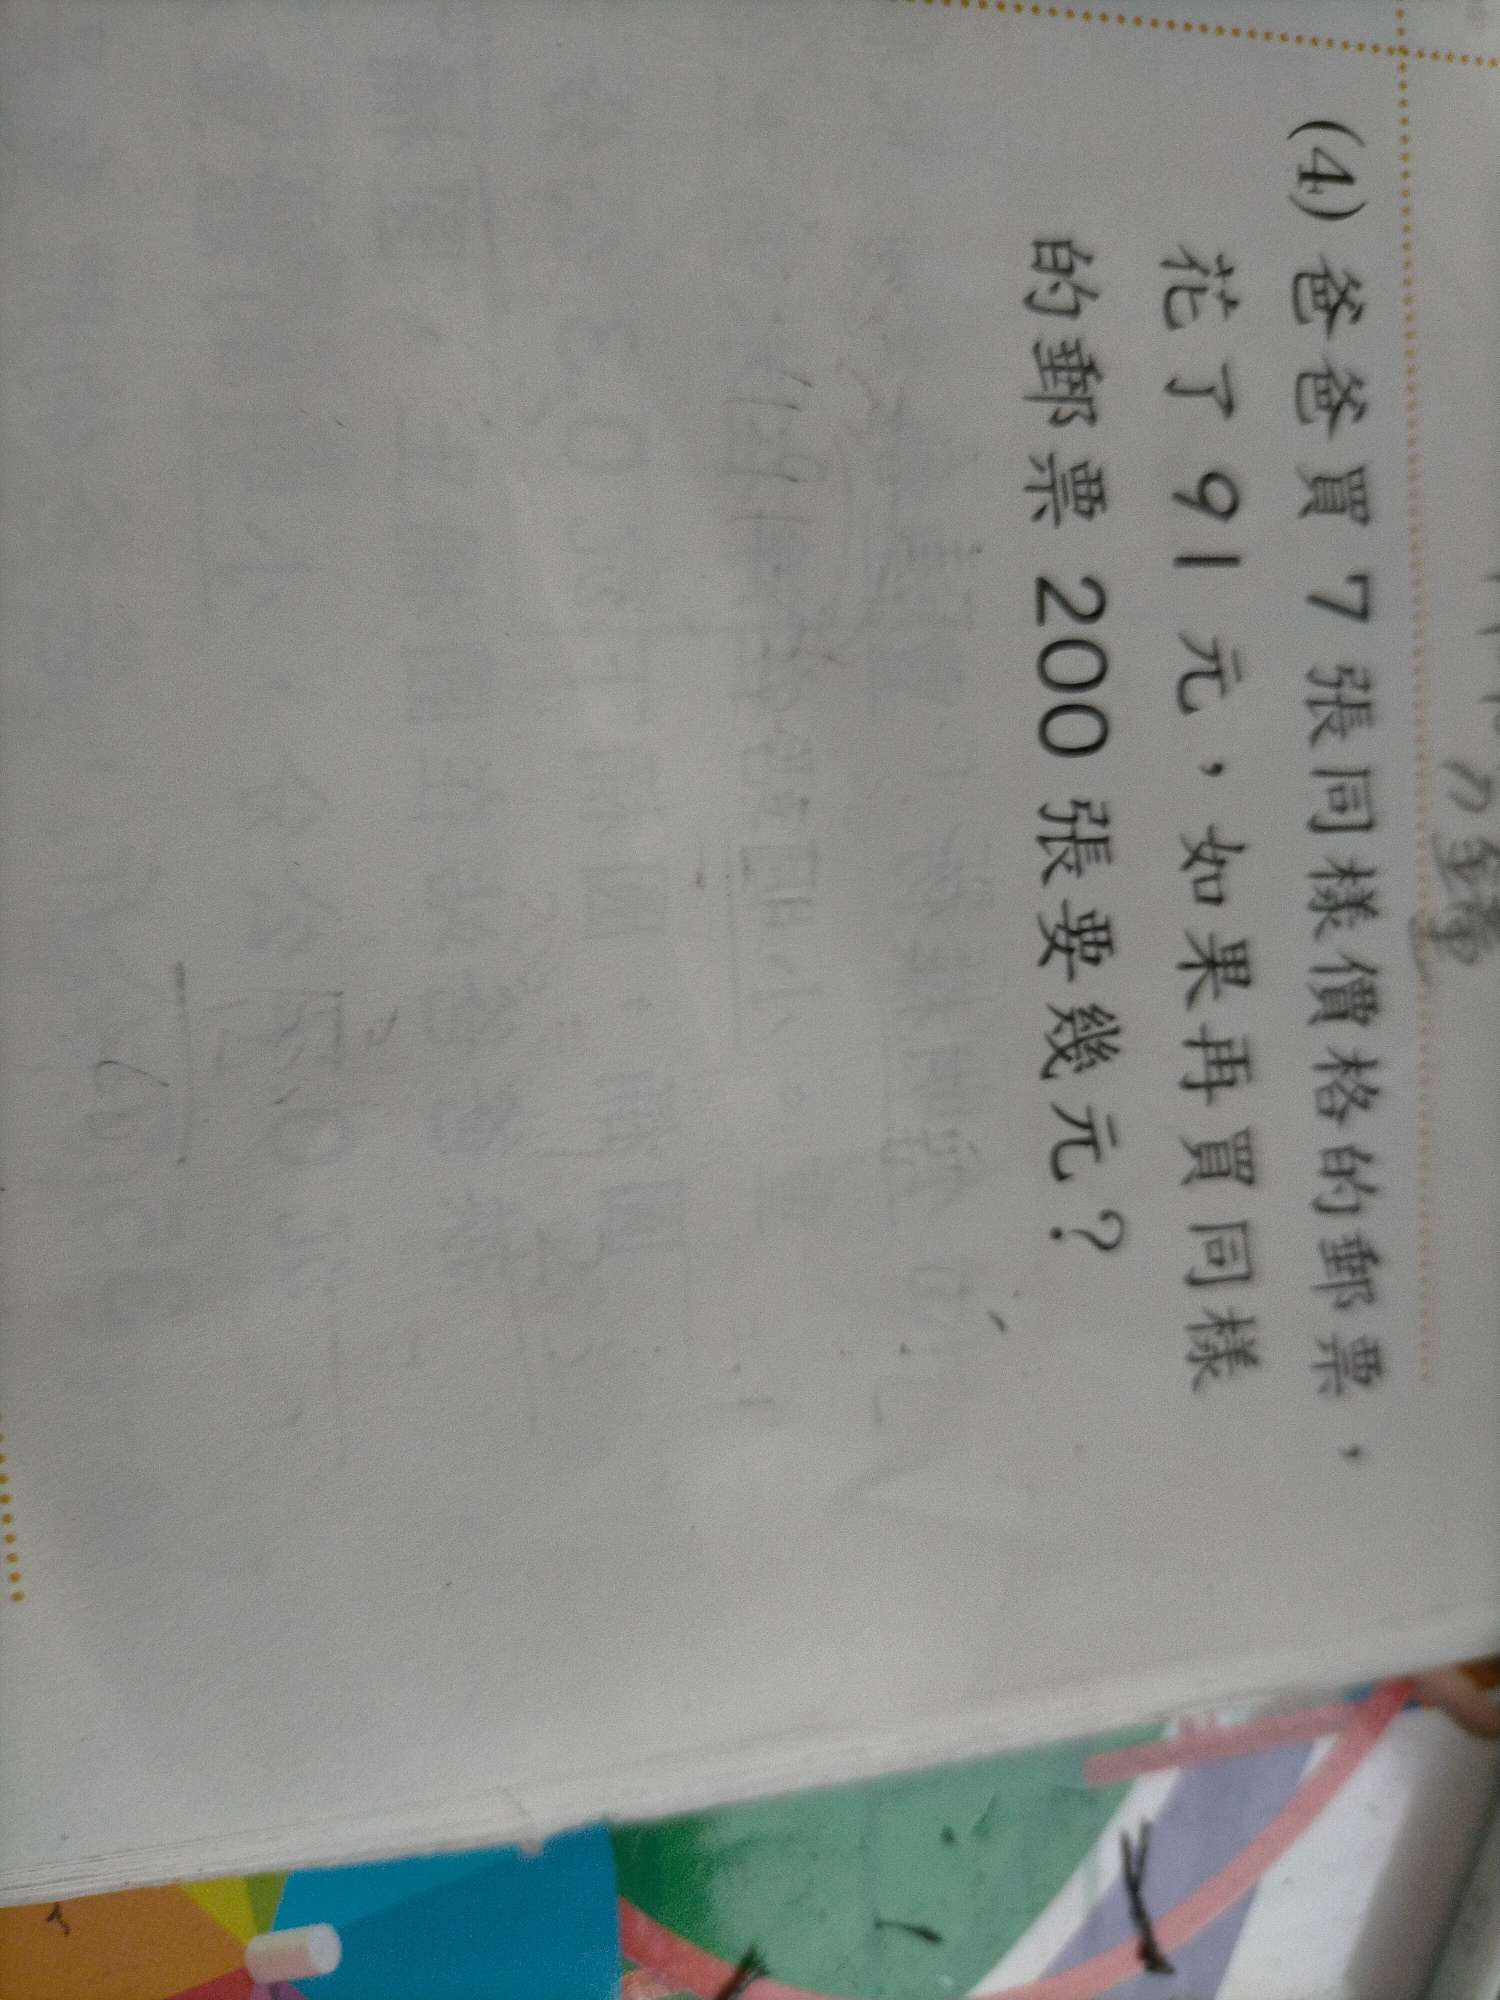 (4) 爸爸買 7 張同樣價格的郵票，
花了 91 元，如果再買同樣
的郵票 200 張要幾元？